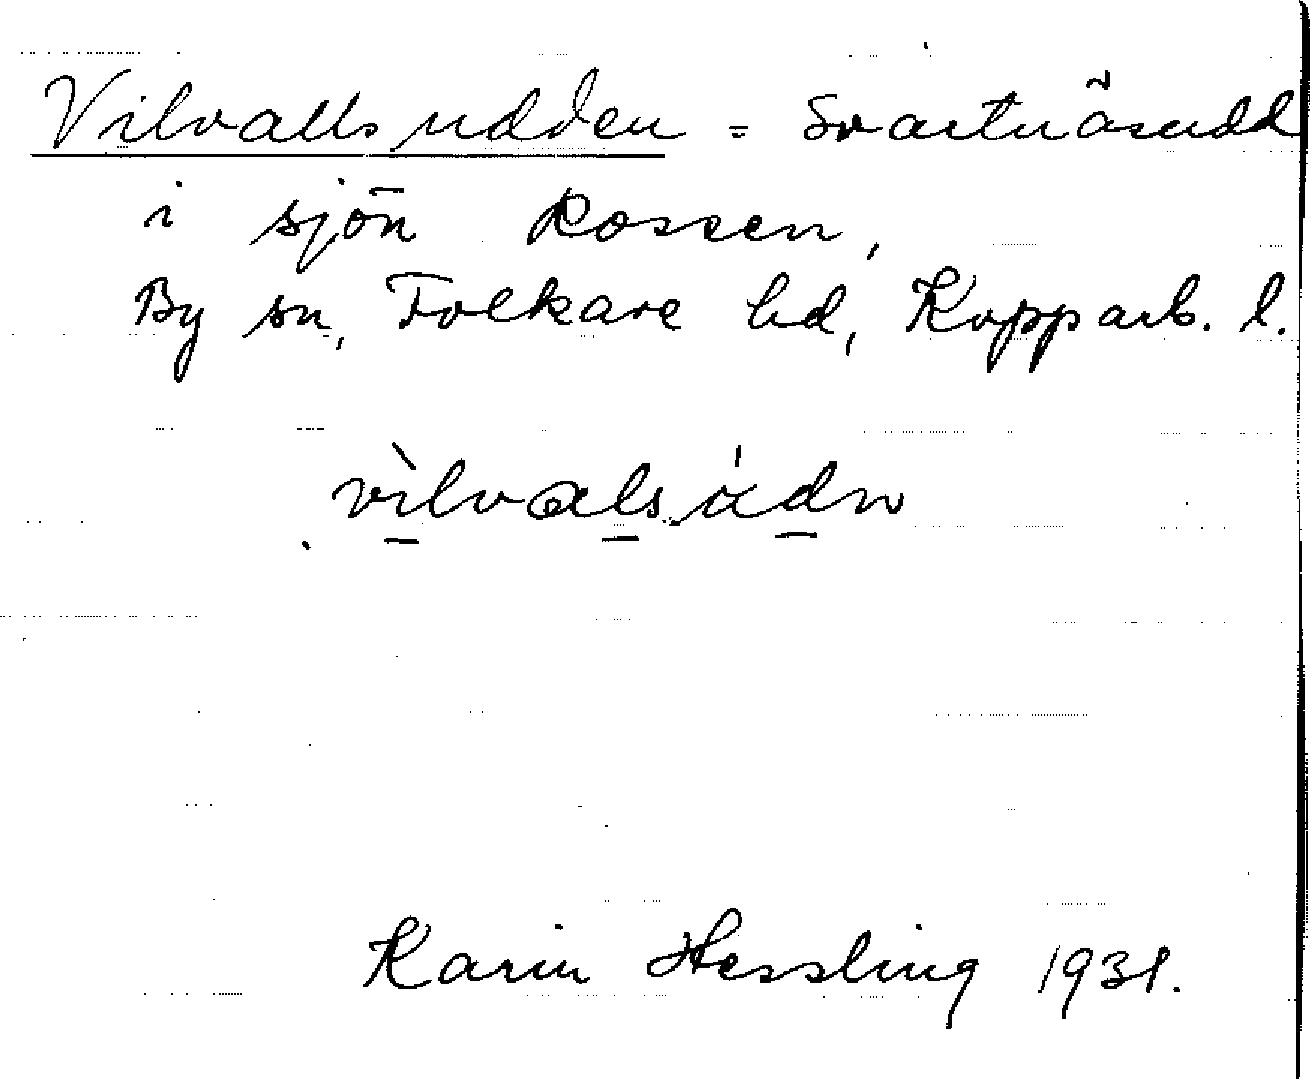 Vilvallsudden = Svartnäsudd
i sjön Rossen,
By sn, Folkare hd, Kopparb. l.
vìlvalsúdn
Karin Hessling 1931.